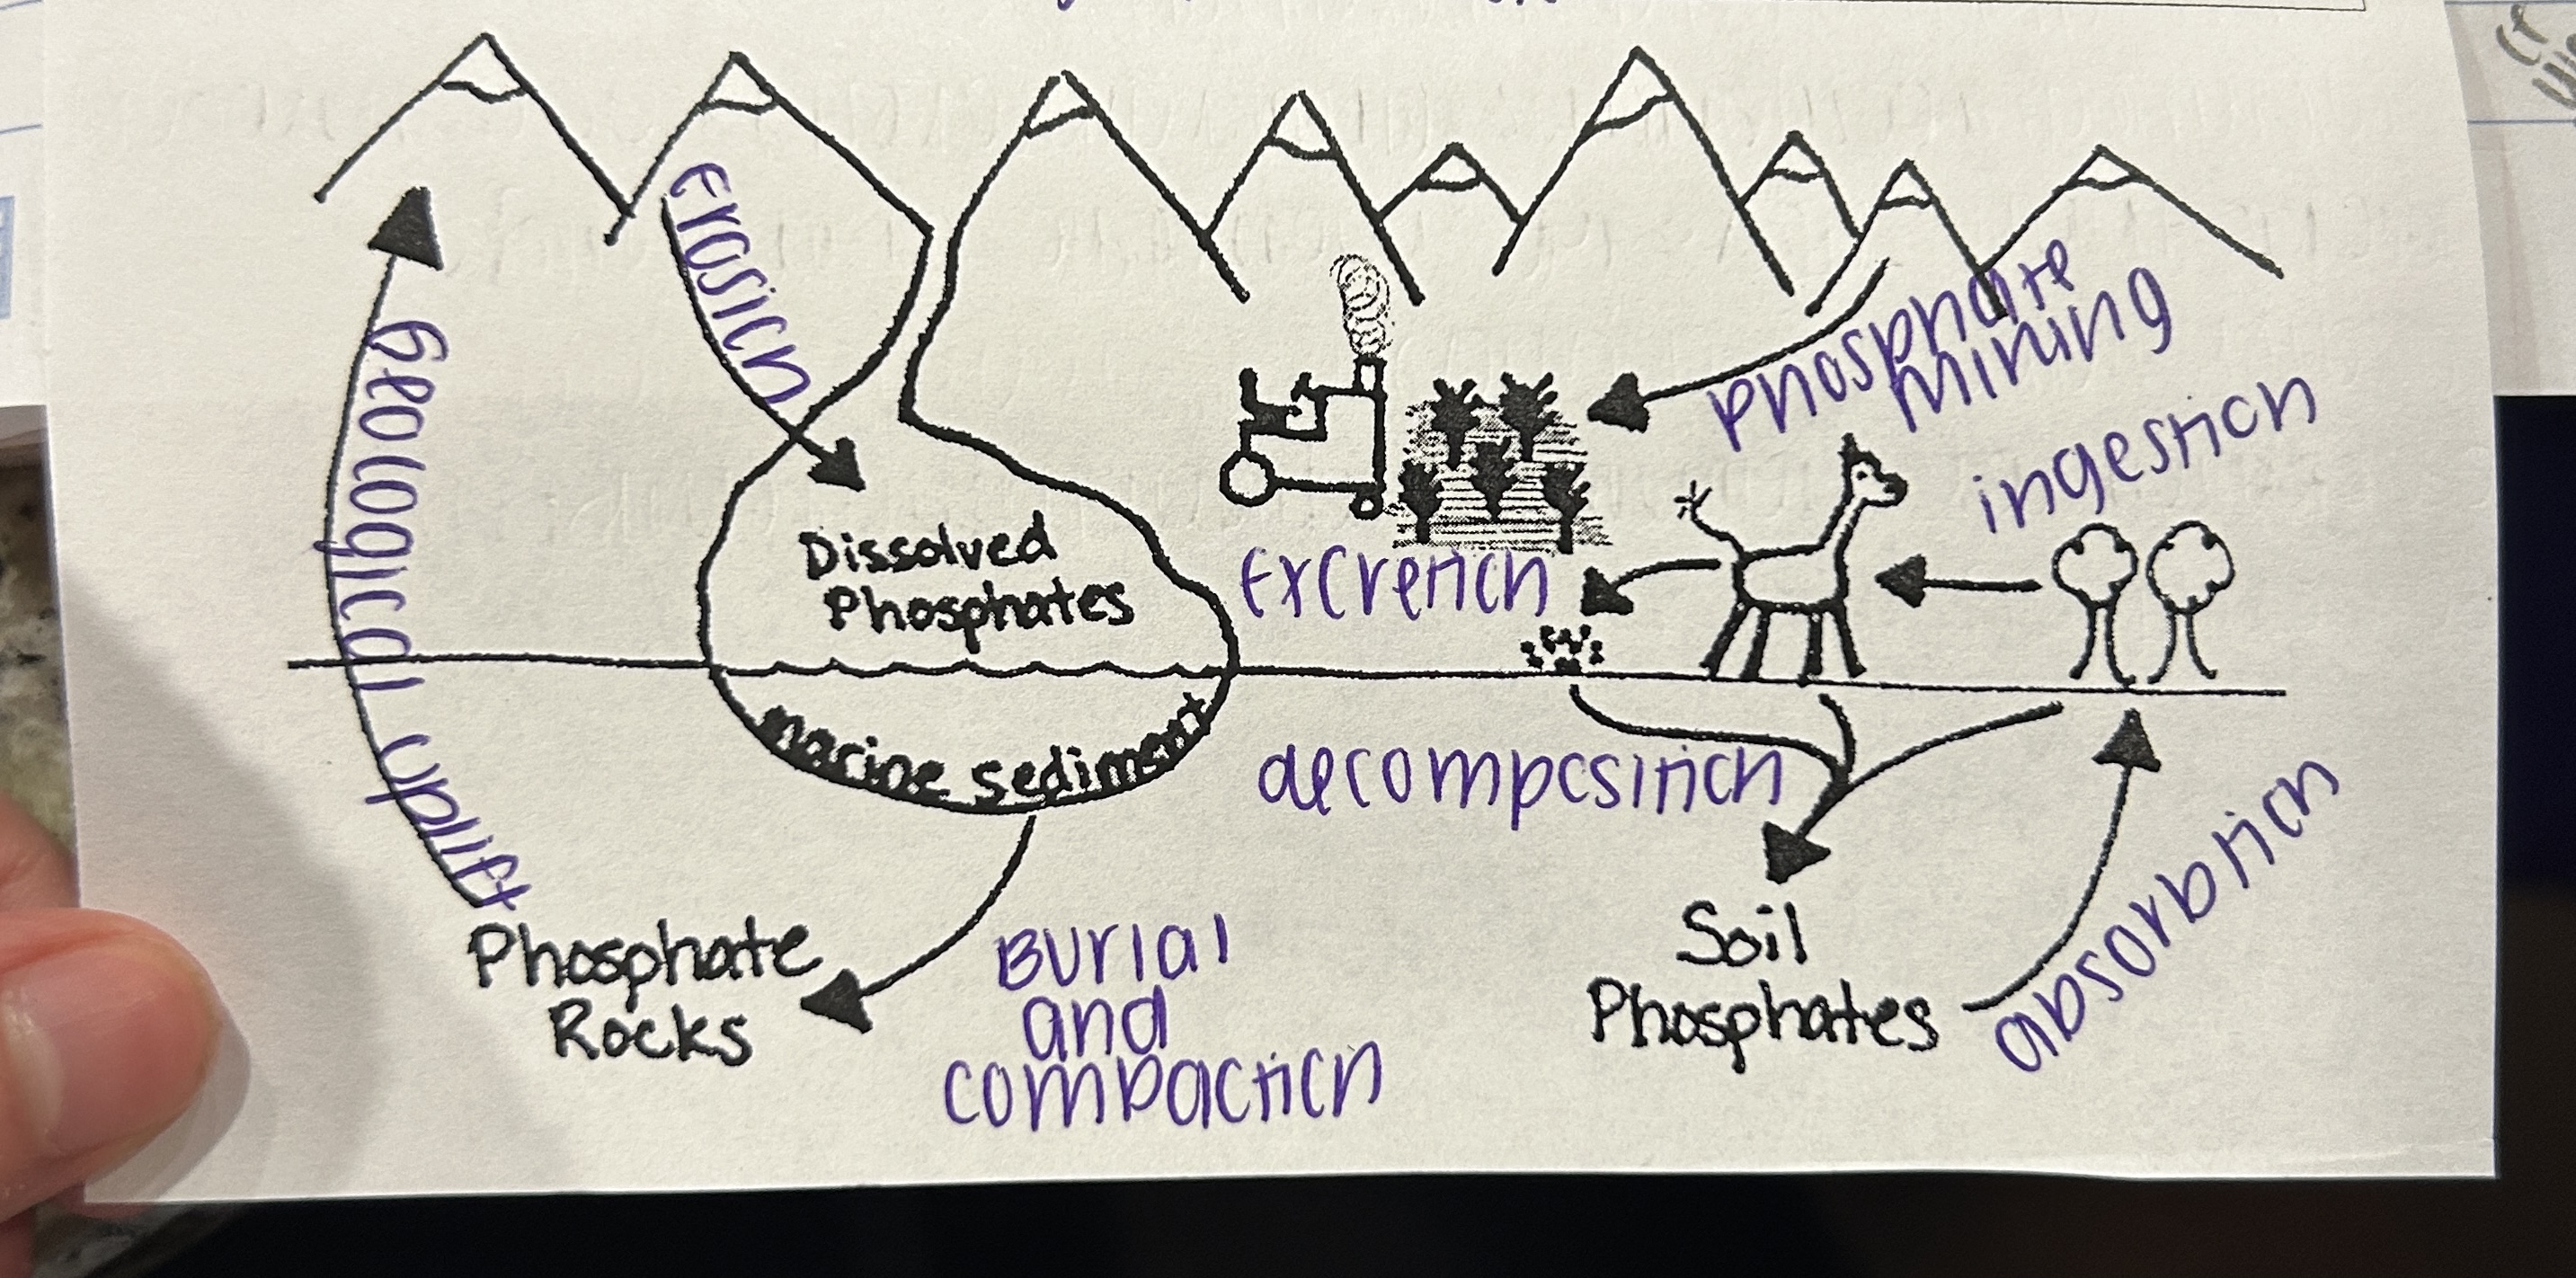 Erosion
Geological uplift
Phosphate
mining
ingestion
Dissolved
Phosphates
Excretion
marine sediment
decomposition
absorbtion
Phosphate
Rocks
Burial
and
compaction
Soil
Phosphates